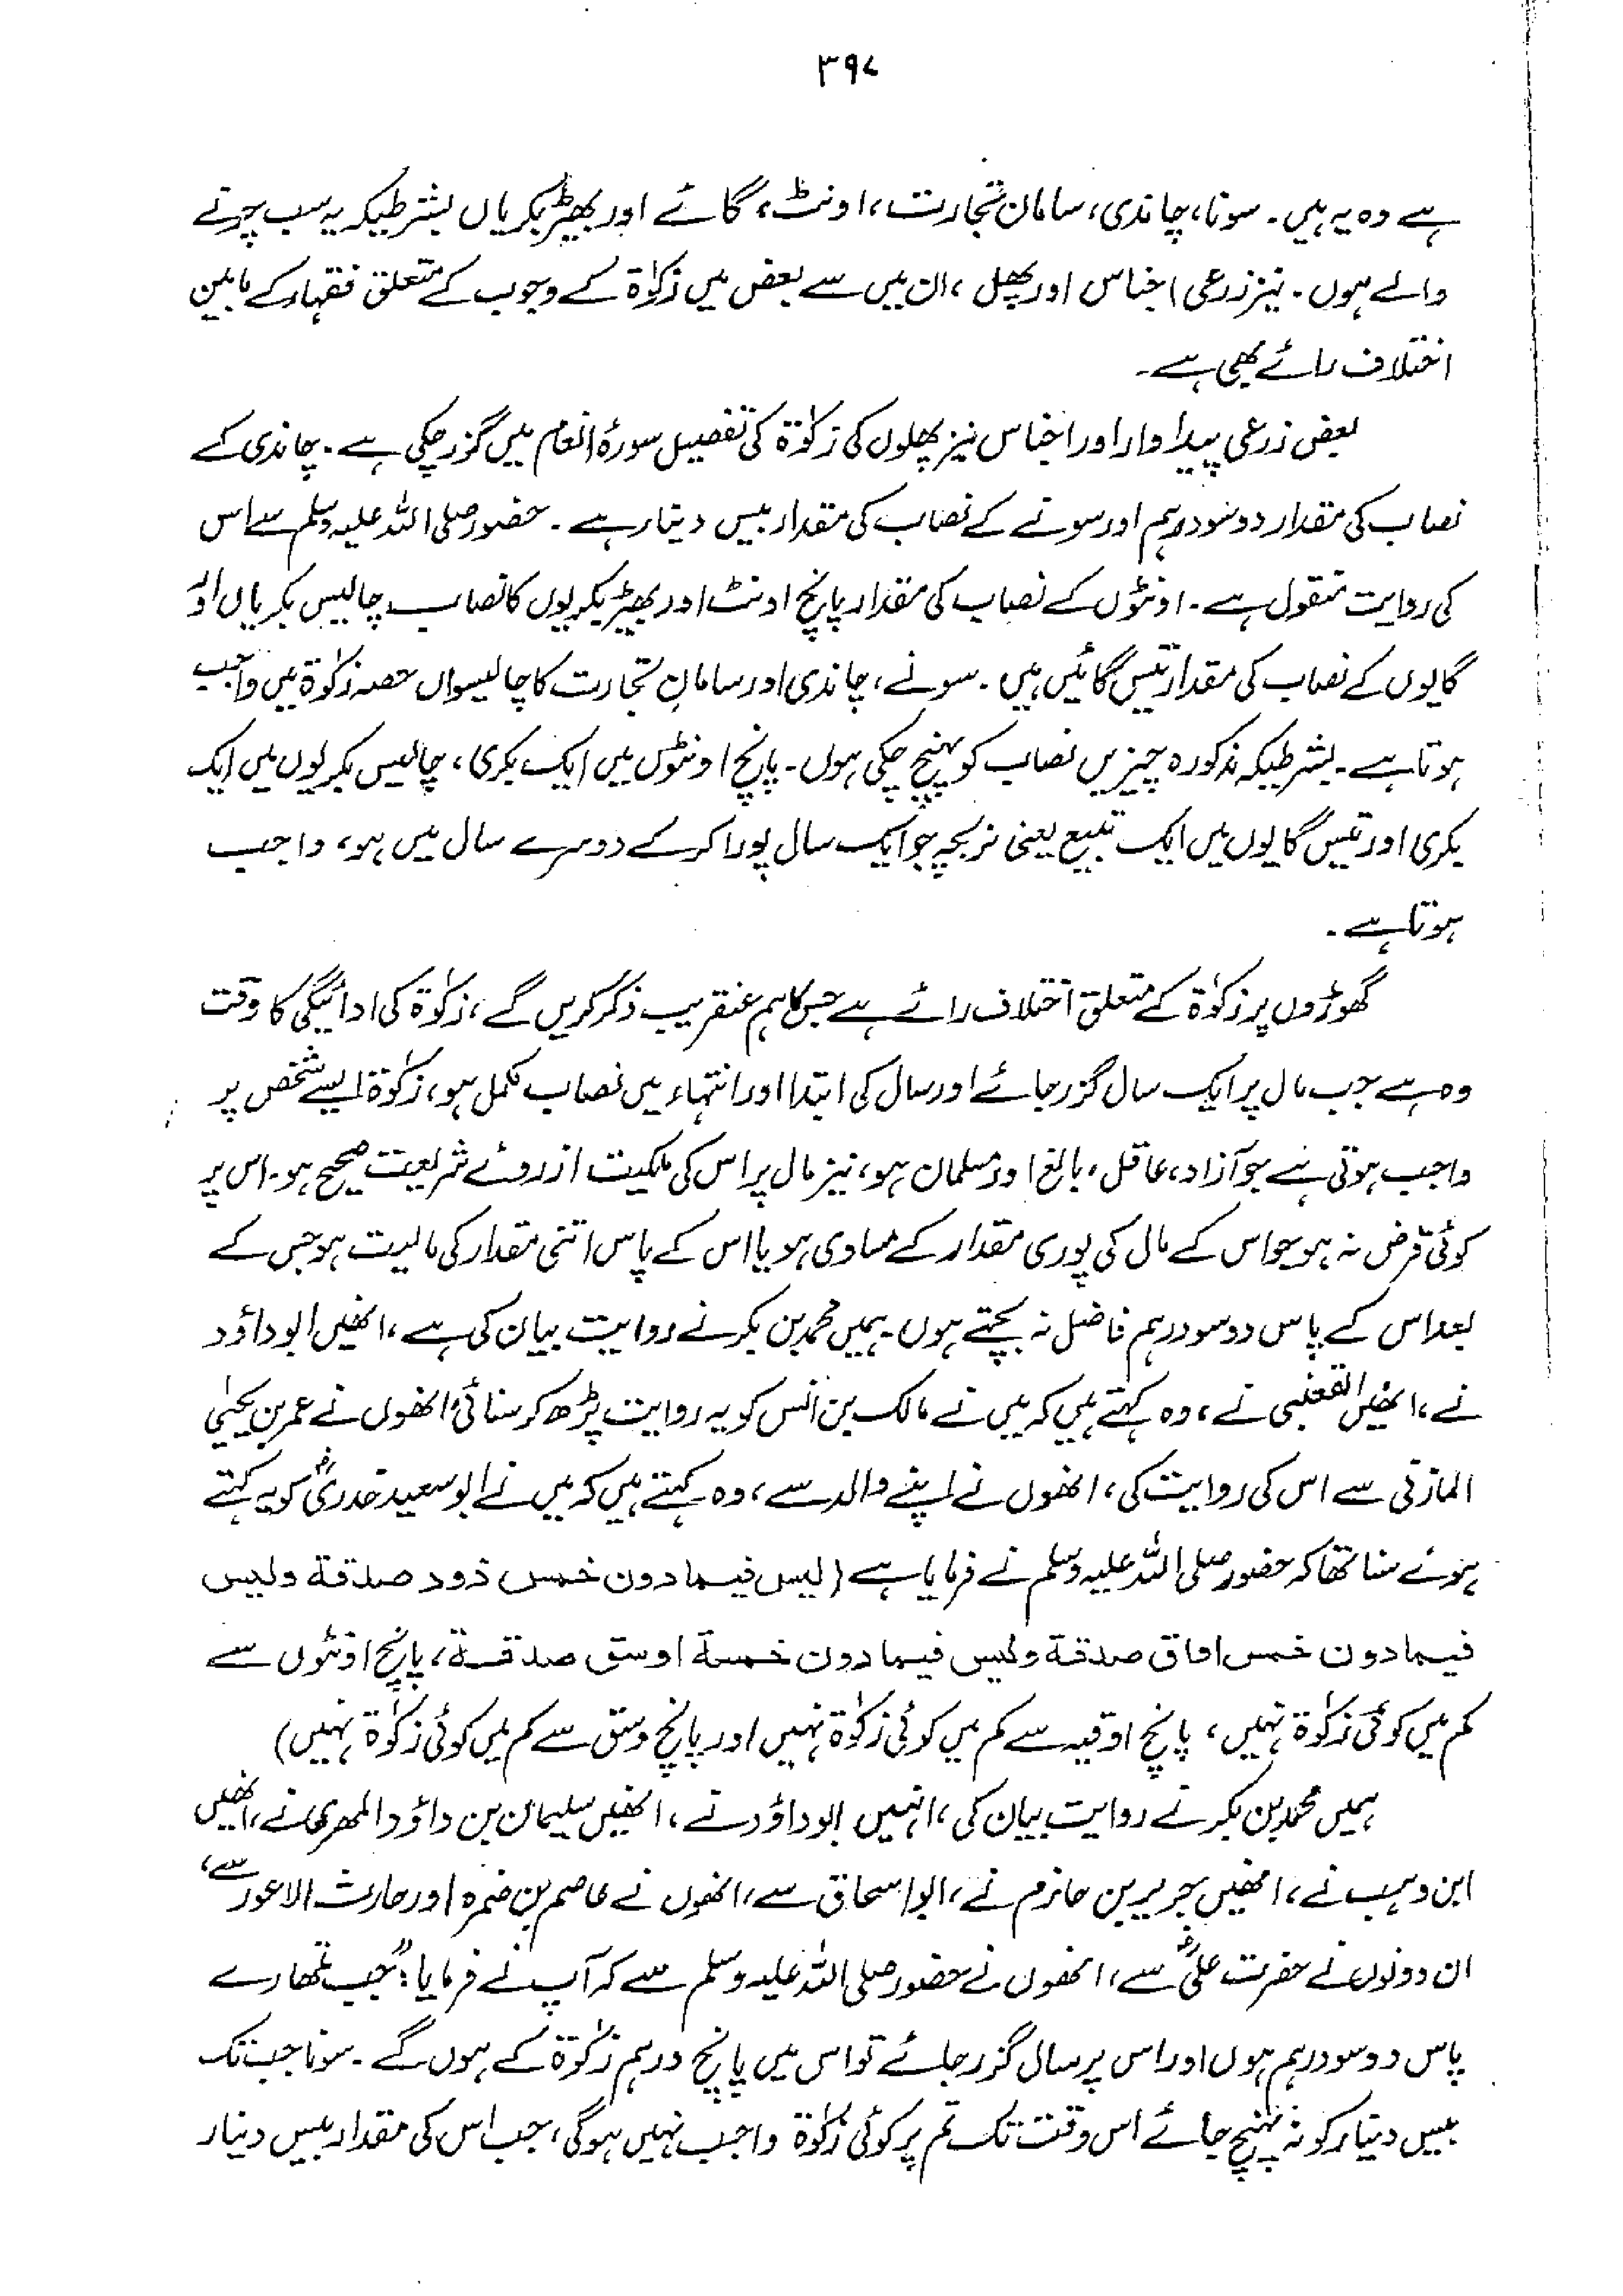 ۳۹۷
ہے وہ یہ ہیں۔ سونا، چاندی، سامان تجارت، اونٹ، گائے اور بھیڑ بکریاں بشرطیکہ یہ سب چرنے
والے ہوں۔ نیز زرعی اجناس اور پھل، ان میں سے بعض میں زکوٰۃ کے وجوب کے متعلق فقہاء کے مابین
اختلاف رائے بھی ہے۔
بعض زرعی پیداوار اور اجناس نیز پھلوں کی زکوٰۃ کی تفصیل سورۂ انعام میں گزر چکی ہے۔ چاندی کے
نصاب کی مقدار دو سو درہم اور سونے کے نصاب کی مقدار بیس دینار ہے۔ حضور صلی اللہ علیہ وسلم سے اس
کی روایت منقول ہے۔ اونٹوں کے نصاب کی مقدار پانچ اونٹ اور بھیڑ بکریوں کا نصاب چالیس بکریاں اور
گایوں کے نصاب کی مقدار تیس گائیں ہیں۔ سونے، چاندی اور سامانِ تجارت کا چالیسواں حصہ زکوٰۃ میں واجب
ہوتا ہے۔ بشرطیکہ مذکورہ چیزیں نصاب کو پہنچ چکی ہوں۔ پانچ اونٹوں میں ایک بکری، چالیس بکریوں میں ایک
بکری اور تیس گایوں میں ایک تبیع یعنی نر بچہ جو ایک سال پورا کر کے دوسرے سال میں ہو، واجب
ہوتا ہے۔
گھوڑوں پر زکوٰۃ کے متعلق اختلاف رائے ہے جس کا ہم عنقریب ذکر کریں گے، زکوٰۃ کی ادائیگی کا وقت
وہ ہے جب مال پر ایک سال گزر جائے اور سال کی ابتدا اور انتہاء میں نصاب مکمل ہو، زکوٰۃ ایسے شخص پر
واجب ہوتی ہے جو آزاد، عاقل، بالغ اور مسلمان ہو، نیز مال پر اس کی ملکیت ازروئے شریعت صحیح ہو۔ اس پر
کوئی قرض نہ ہو جو اس کے مال کی پوری مقدار کے مساوی ہو یا اس کے پاس اتنی مقدار کی مالیت ہو جس کے
بعد اس کے پاس دو سو درہم فاضل نہ بچتے ہوں۔ ہمیں محمد بن بکر نے روایت بیان کی ہے، انھیں ابوداؤد
نے، انھیں القعنبی نے، وہ کہتے ہیں کہ میں نے مالک بن انس کو یہ روایت پڑھ کر سنائی، انھوں نے عمر بن یحییٰ
المازنی سے اس کی روایت کی، انھوں نے اپنے والد سے، وہ کہتے ہیں کہ میں نے ابو سعید خدریؓ کو یہ کہتے
ہوئے سنا تھا کہ حضور صلی اللہ علیہ وسلم نے فرمایا ہے (لیس فیما دون خمس ذود صدقة ولیس
فیما دون خمس اواق صدقة ولیس فیما دون خمسة اوسق صدقة، پانچ اونٹوں سے
کم میں کوئی زکوٰۃ نہیں، پانچ اوقیہ سے کم میں کوئی زکوٰۃ نہیں اور پانچ وسق سے کم میں کوئی زکوٰۃ نہیں)
ہمیں محمد بن بکر نے روایت بیان کی، انہیں ابوداؤد نے، انھیں سلیمان بن داؤد المھری نے، انھیں
ابن وہب نے، انھیں جریر بن حازم نے، ابو اسحاق سے، انھوں نے عاصم بن ضمرہ اور حارث الاعور سے،
ان دونوں نے حضرت علیؓ سے، انھوں نے حضور صلی اللہ علیہ وسلم سے کہ آپ نے فرمایا: ”جب تمھارے
پاس دو سو درہم ہوں اور اس پر سال گزر جائے تو اس میں پانچ درہم زکوٰۃ کے ہوں گے۔ سونا جب تک
بیس دینار کو نہ پہنچ جائے اس وقت تک تم پر کوئی زکوٰۃ واجب نہیں ہوگی، جب اس کی مقدار بیس دینار